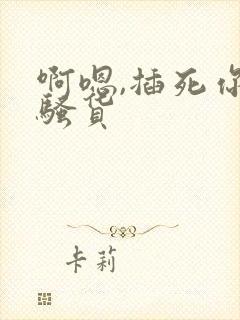 啊嗯,插死你
骚货
卡莉